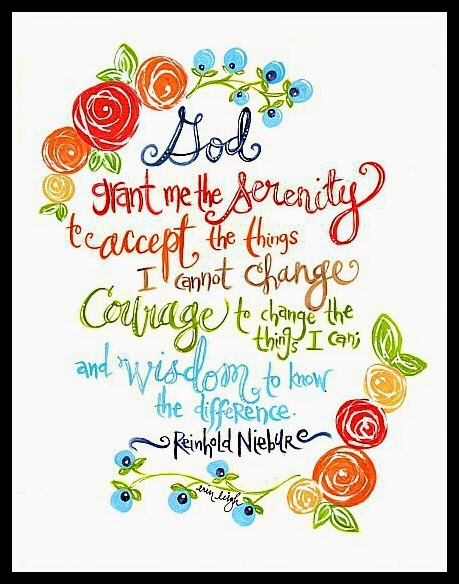 God
grant me the Serenity
to accept the things
I cannot change
Courage to change the
things I can;
and wisdom to know
the difference.
Reinhold Niebur
erin leigh